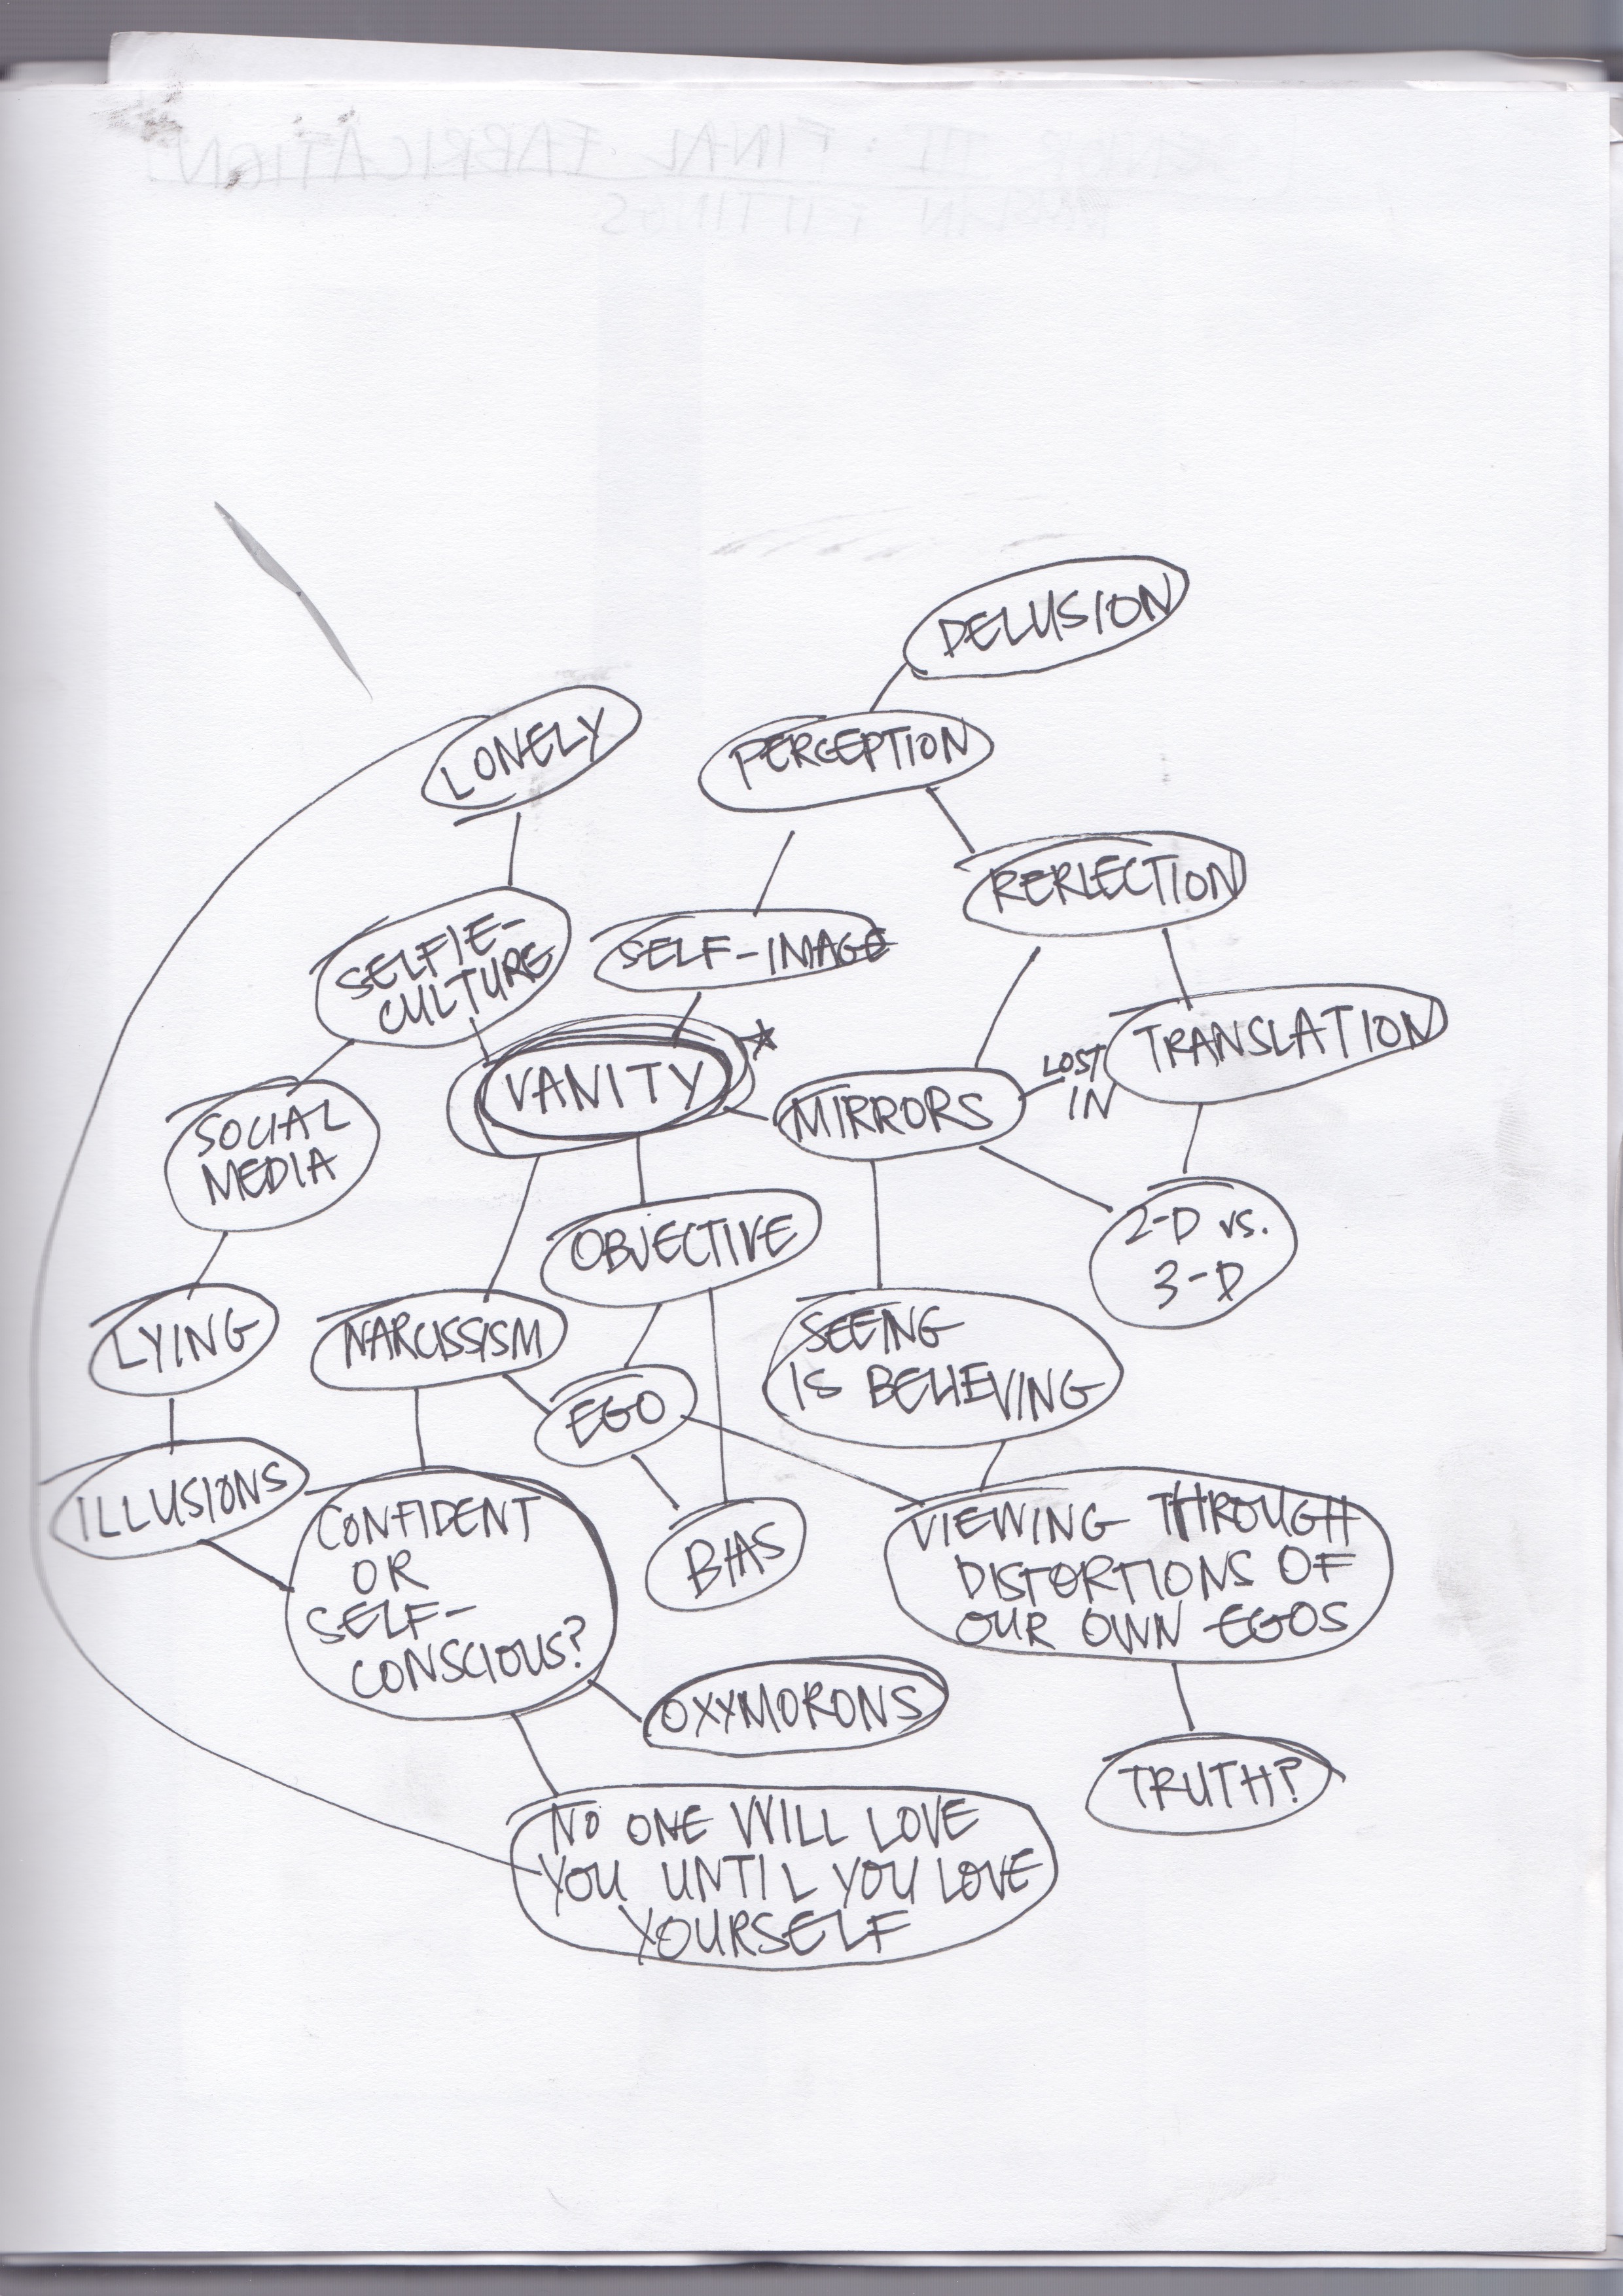 DELUSION
LONELY
PERCEPTION
RERLECTION
SELFIE-
CULTURE
SELF-IMAGE
TRANSLATION
LOST
IN
VANITY
MIRRORS
SOCIAL
MEDIA
OBJECTIVE
2-D vs.
3-D
LYING
NARCISSISM
SEEING
IS BELIEVING
EGO
ILLUSIONS
CONFIDENT
OR
SELF-
CONSCIOUS?
BIAS
VIEWING THROUGH
DISTORTIONS OF
OUR OWN EGOS
OXYMORONS
TRUTH?
NO ONE WILL LOVE
YOU UNTIL YOU LOVE
YOURSELF